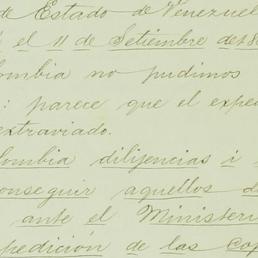 de Estado de Venezuel
el 11 de Setiembre de 18
lombia no pudimos
: parece que el exped
extraviado.
lombia dilijencias i
onseguir aquellos d
ante el Ministeri
pedición de las cop